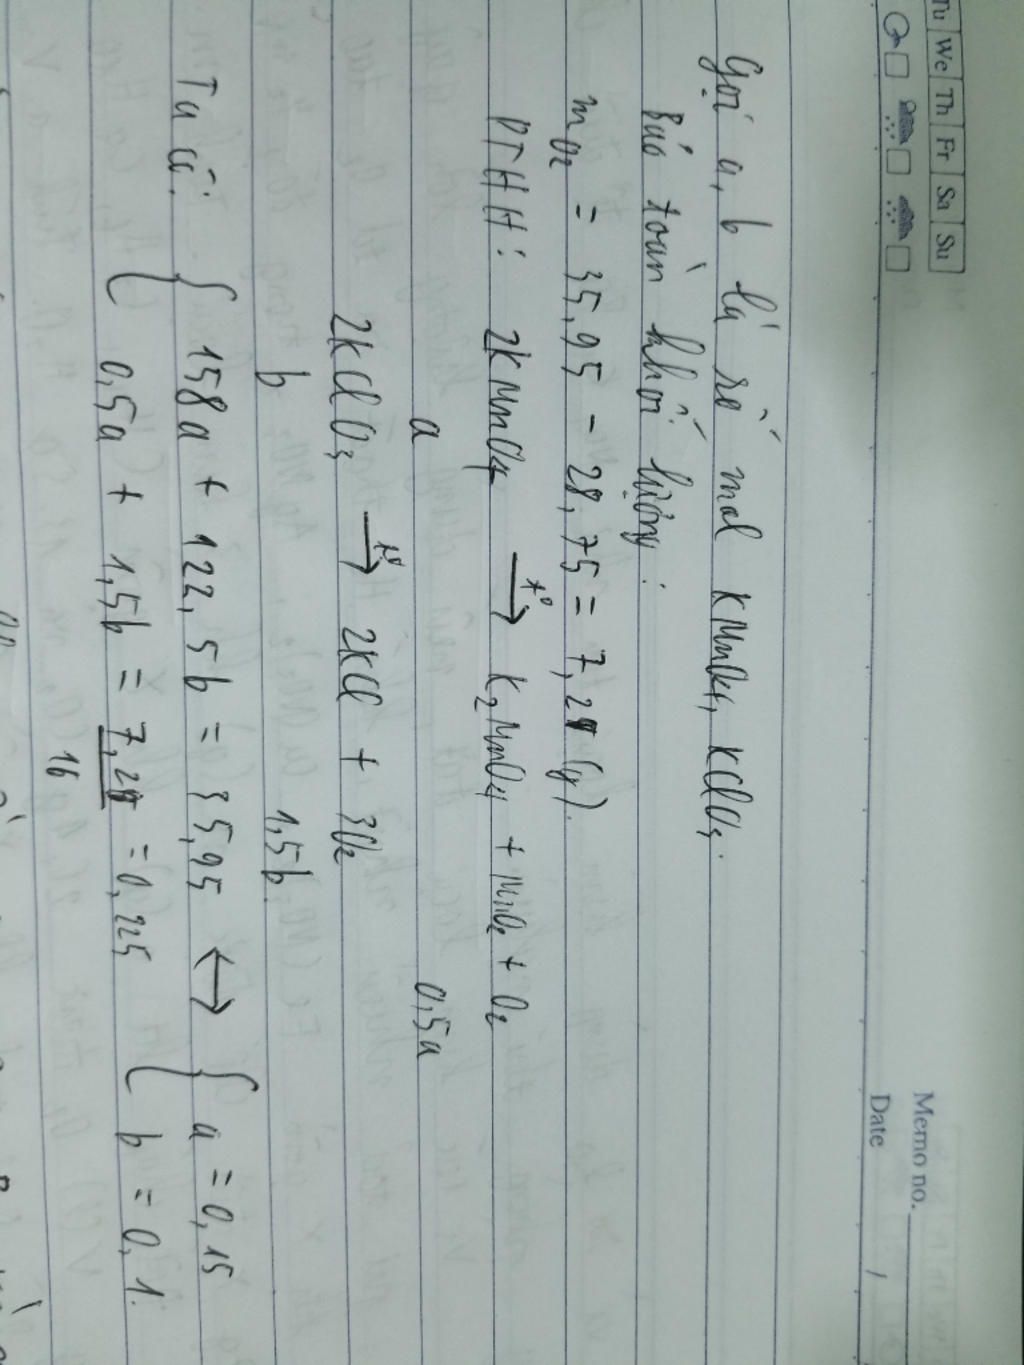 Memo no.
Tu We Th Fr Sa Su
Date /
Gọi a, b là số mol KMnO4, KClO3.
Bảo toàn khối lượng:
mO2 = 35,95 - 28,75 = 7,2 (g).
PTHH: 2KMnO4 →t° K2MnO4 + MnO2 + O2
a 0,5a
2KClO3 →t° 2KCl + 3O2
b 1,5b
Ta có: { 158a + 122,5b = 35,95 ↔ { a = 0,15
0,5a + 1,5b = 7,2 = 0,225 b = 0,1.
16